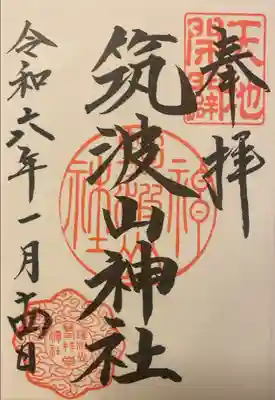 奉拝
天地
開闢
筑波山神社
令和六年一月十四日